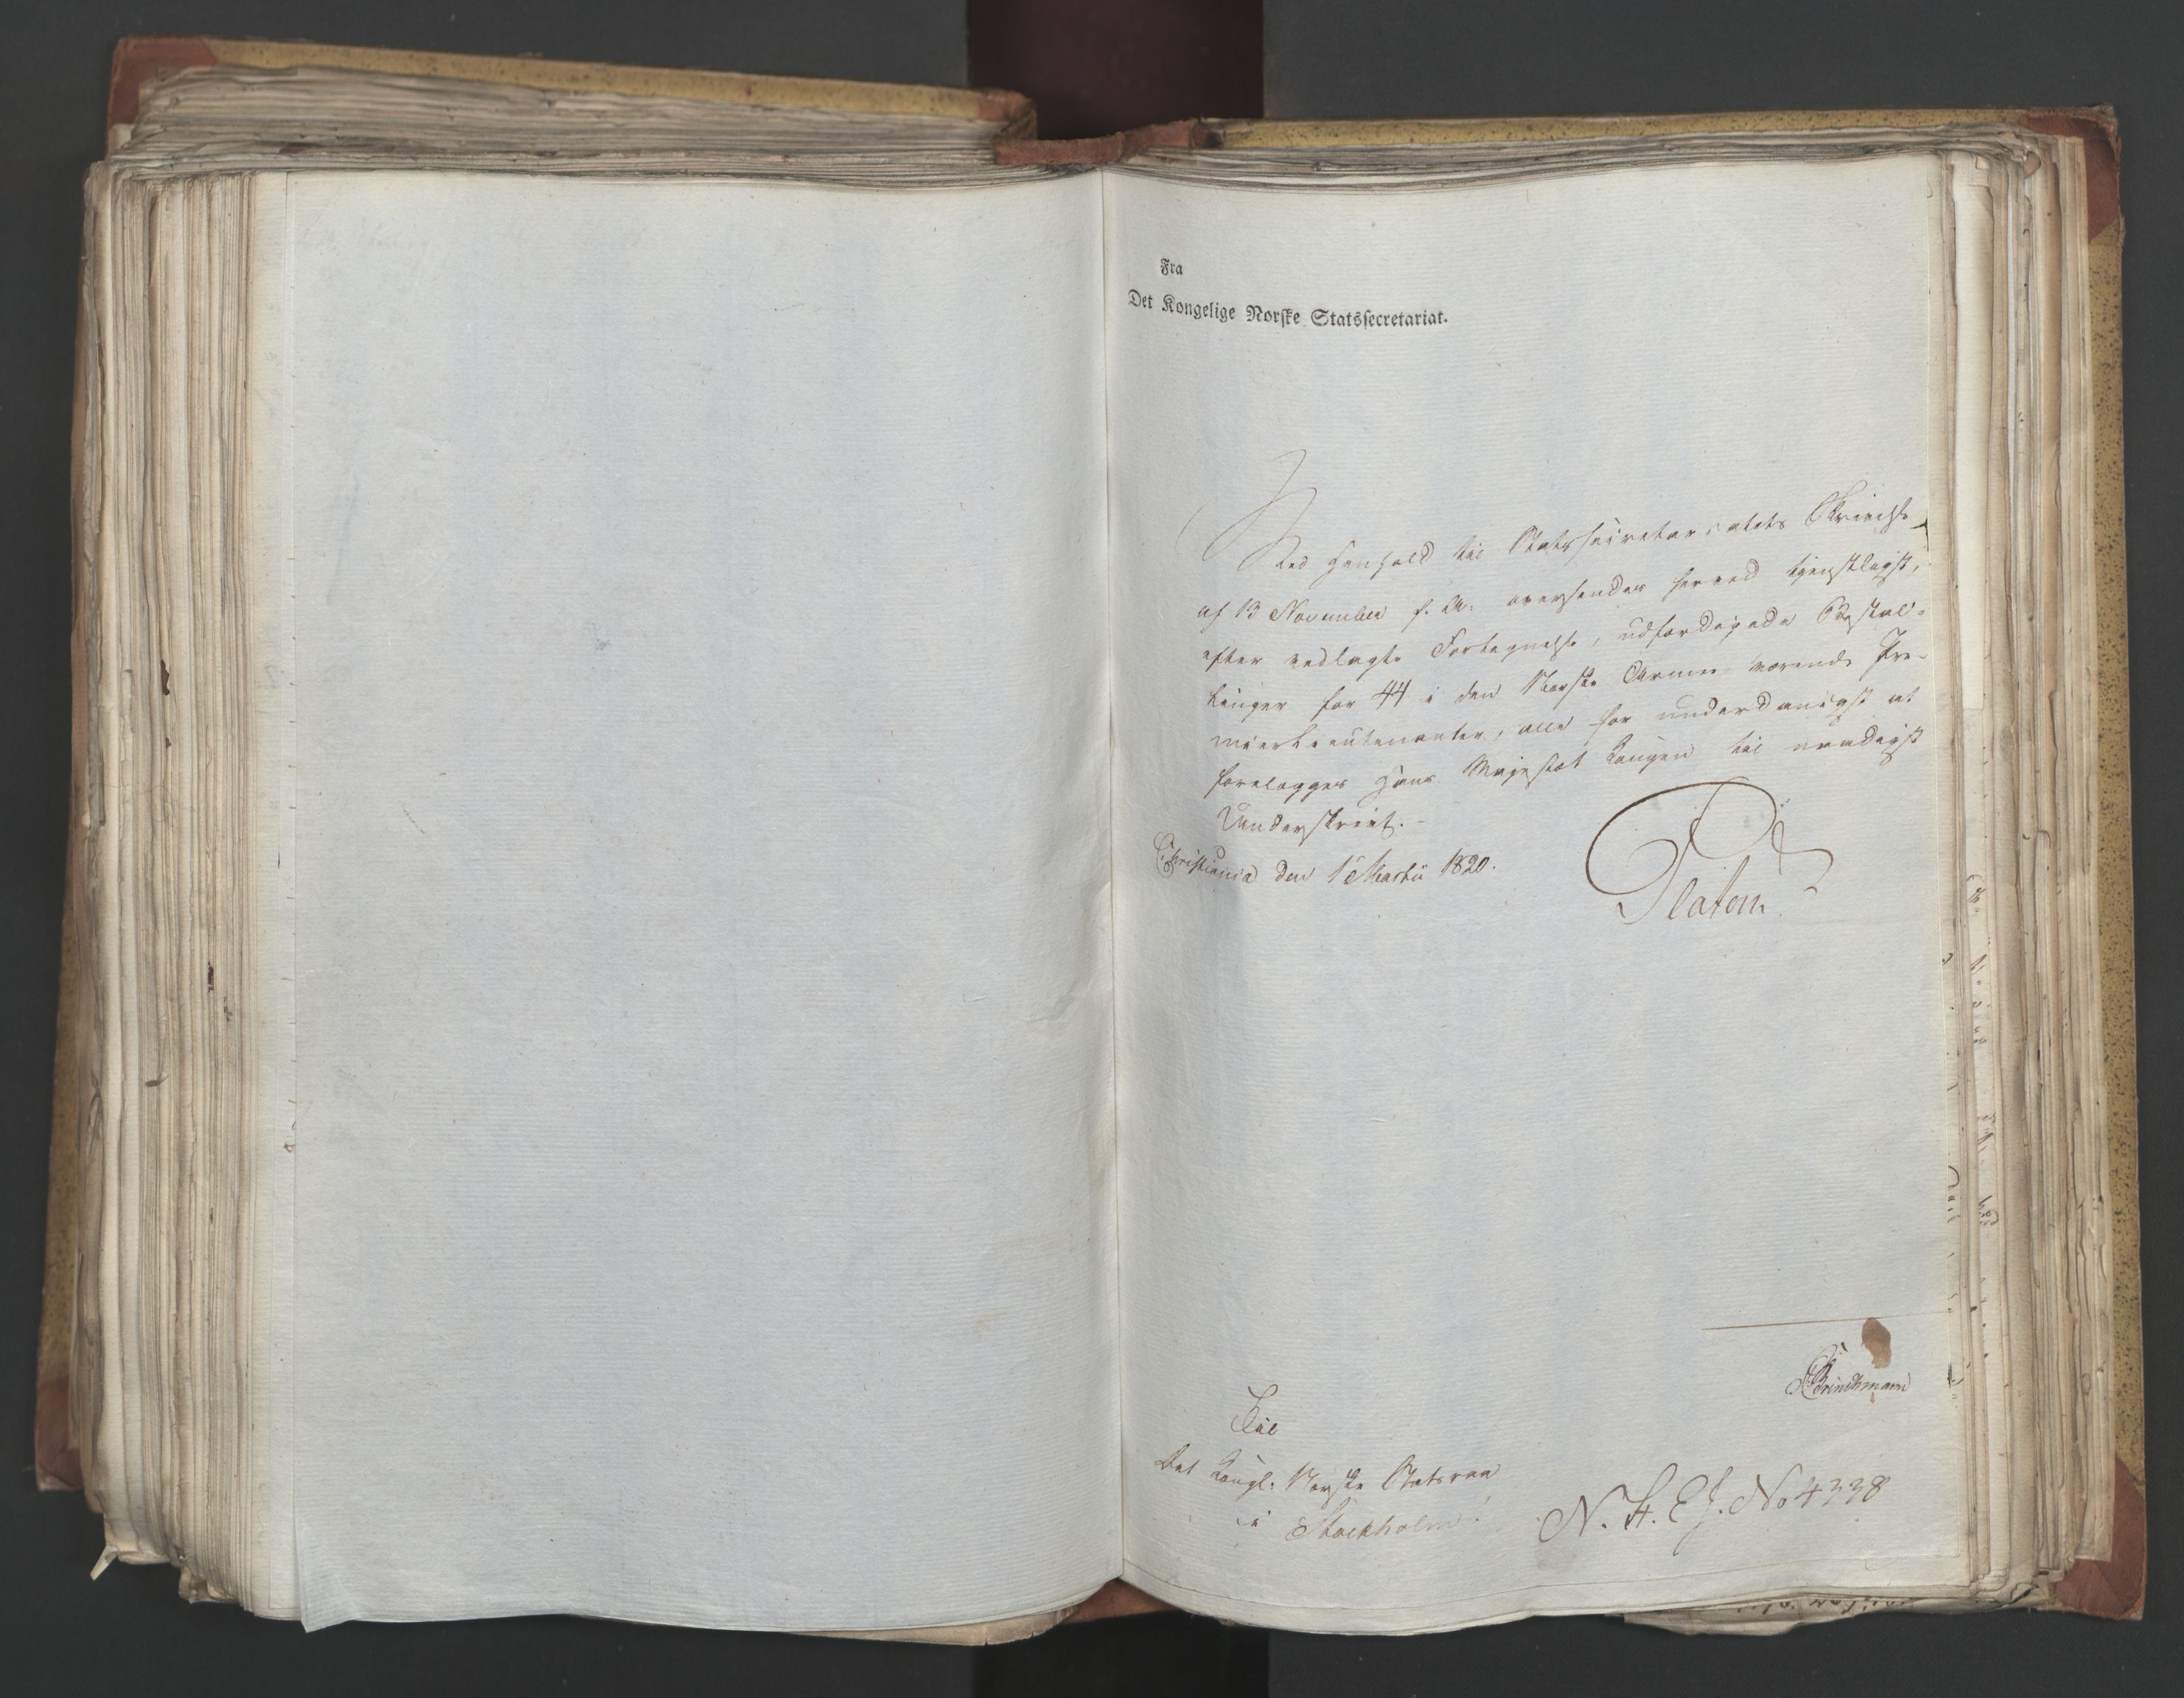 Fra
Det Kongelige Norske Statssecretariat.
Med Henhold til Statssecretariatets Skrivelse
af 13 November f. A. oversendes herved tjenstligst,
efter vedlagte Fortegnelse, udfærdigede Bestal-
linger for 44 i den Norske Armee værende Pre-
mierlieutenanter, alle for underdanigst at
forelægges Hans Majestæt Kongen til naadigst
Underskrivt.
Christiania den 1 Martii 1820.
Platen
Brinchmann
Til
Det Kongl. Norske Statsraad
i Stockholm.
N. H. Ef. No 4338